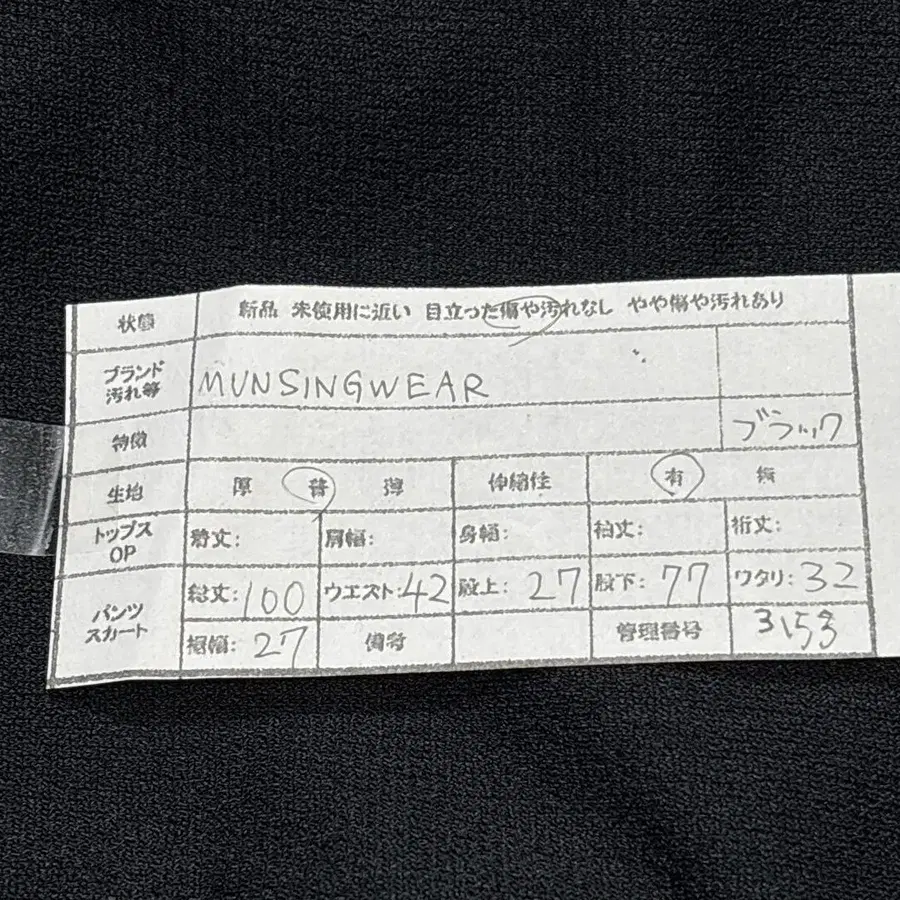 状態 新品 未使用に近い 目立った傷や汚れなし やや傷や汚れあり
ブランド
汚れ等 MUNSINGWEAR
特徴 ブラック
生地 厚 普 薄 伸縮性 有 無
トップス
OP 着丈: 肩幅: 身幅: 袖丈: 裄丈:
パンツ
スカート 総丈:100 ウエスト:42 股上:27 股下:77 ワタリ:32
裾幅:27 備考 管理番号 3153